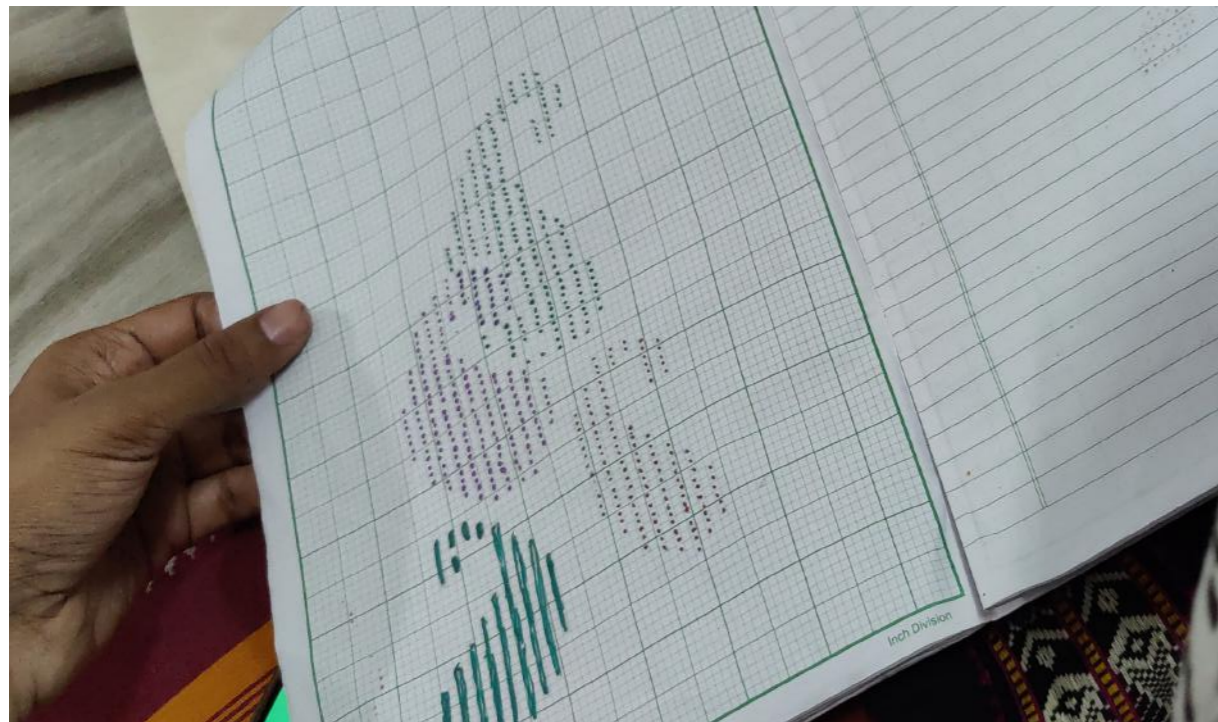 Inch Division